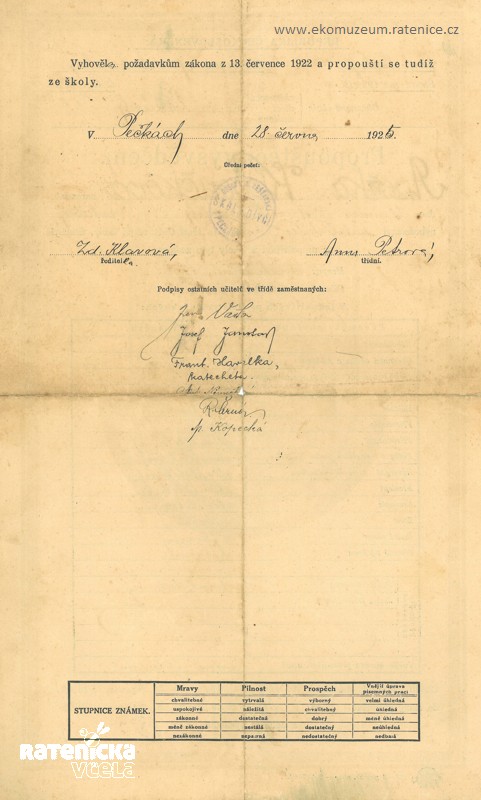 www.ekomuzeum.ratenice.cz
Vyhověla požadavkům zákona z 13. července 1922 a propouští se tudíž
ze školy.
V Pečkách dne 28. června 1925
Úřední pečeť:
Zd. Klavová, Anna Petrová,
ředitelka. třídní.
Podpisy ostatních učitelů ve třídě zaměstnaných:
Josef
Frant. Havelka,
katecheta.
Kopecká
STUPNICE ZNÁMEK.
Mravy Pilnost Prospěch Vnější úprava písemných prací
chvalitebné vytrvalá výborný velmi úhledná
uspokojivé náležitá chvalitebný úhledná
zákonné dostatečná dobrý méně úhledná
méně zákonné nestálá dostatečný neúhledná
nezákonné nepatrná nedostatečný nedbalá
RATENICKÁ
včela